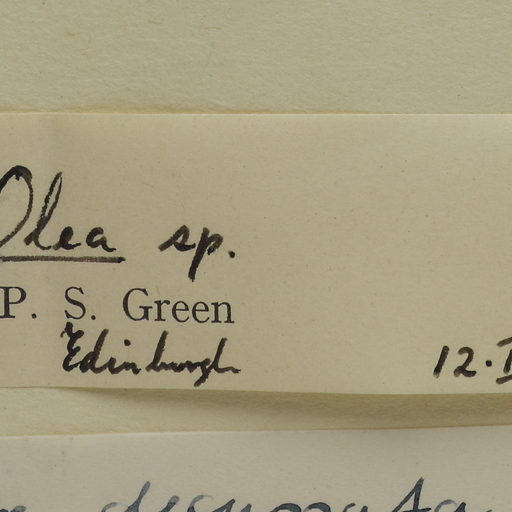 Olea sp.
P. S. Green
Edinburgh 12.